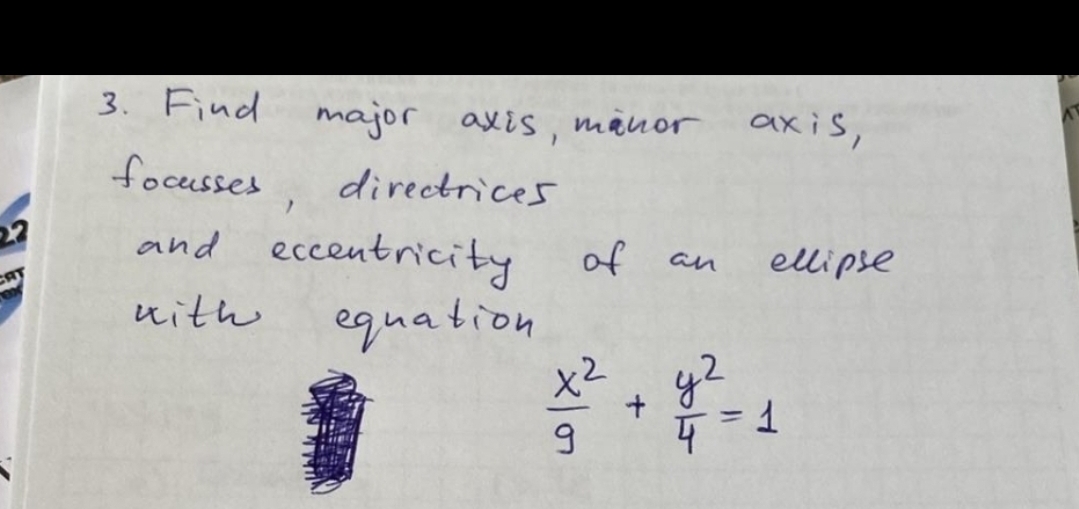 3. Find major axis, minor axis,
focusses, directrices
and eccentricity of an ellipse
with equation
x²/9 + y²/4 = 1
22